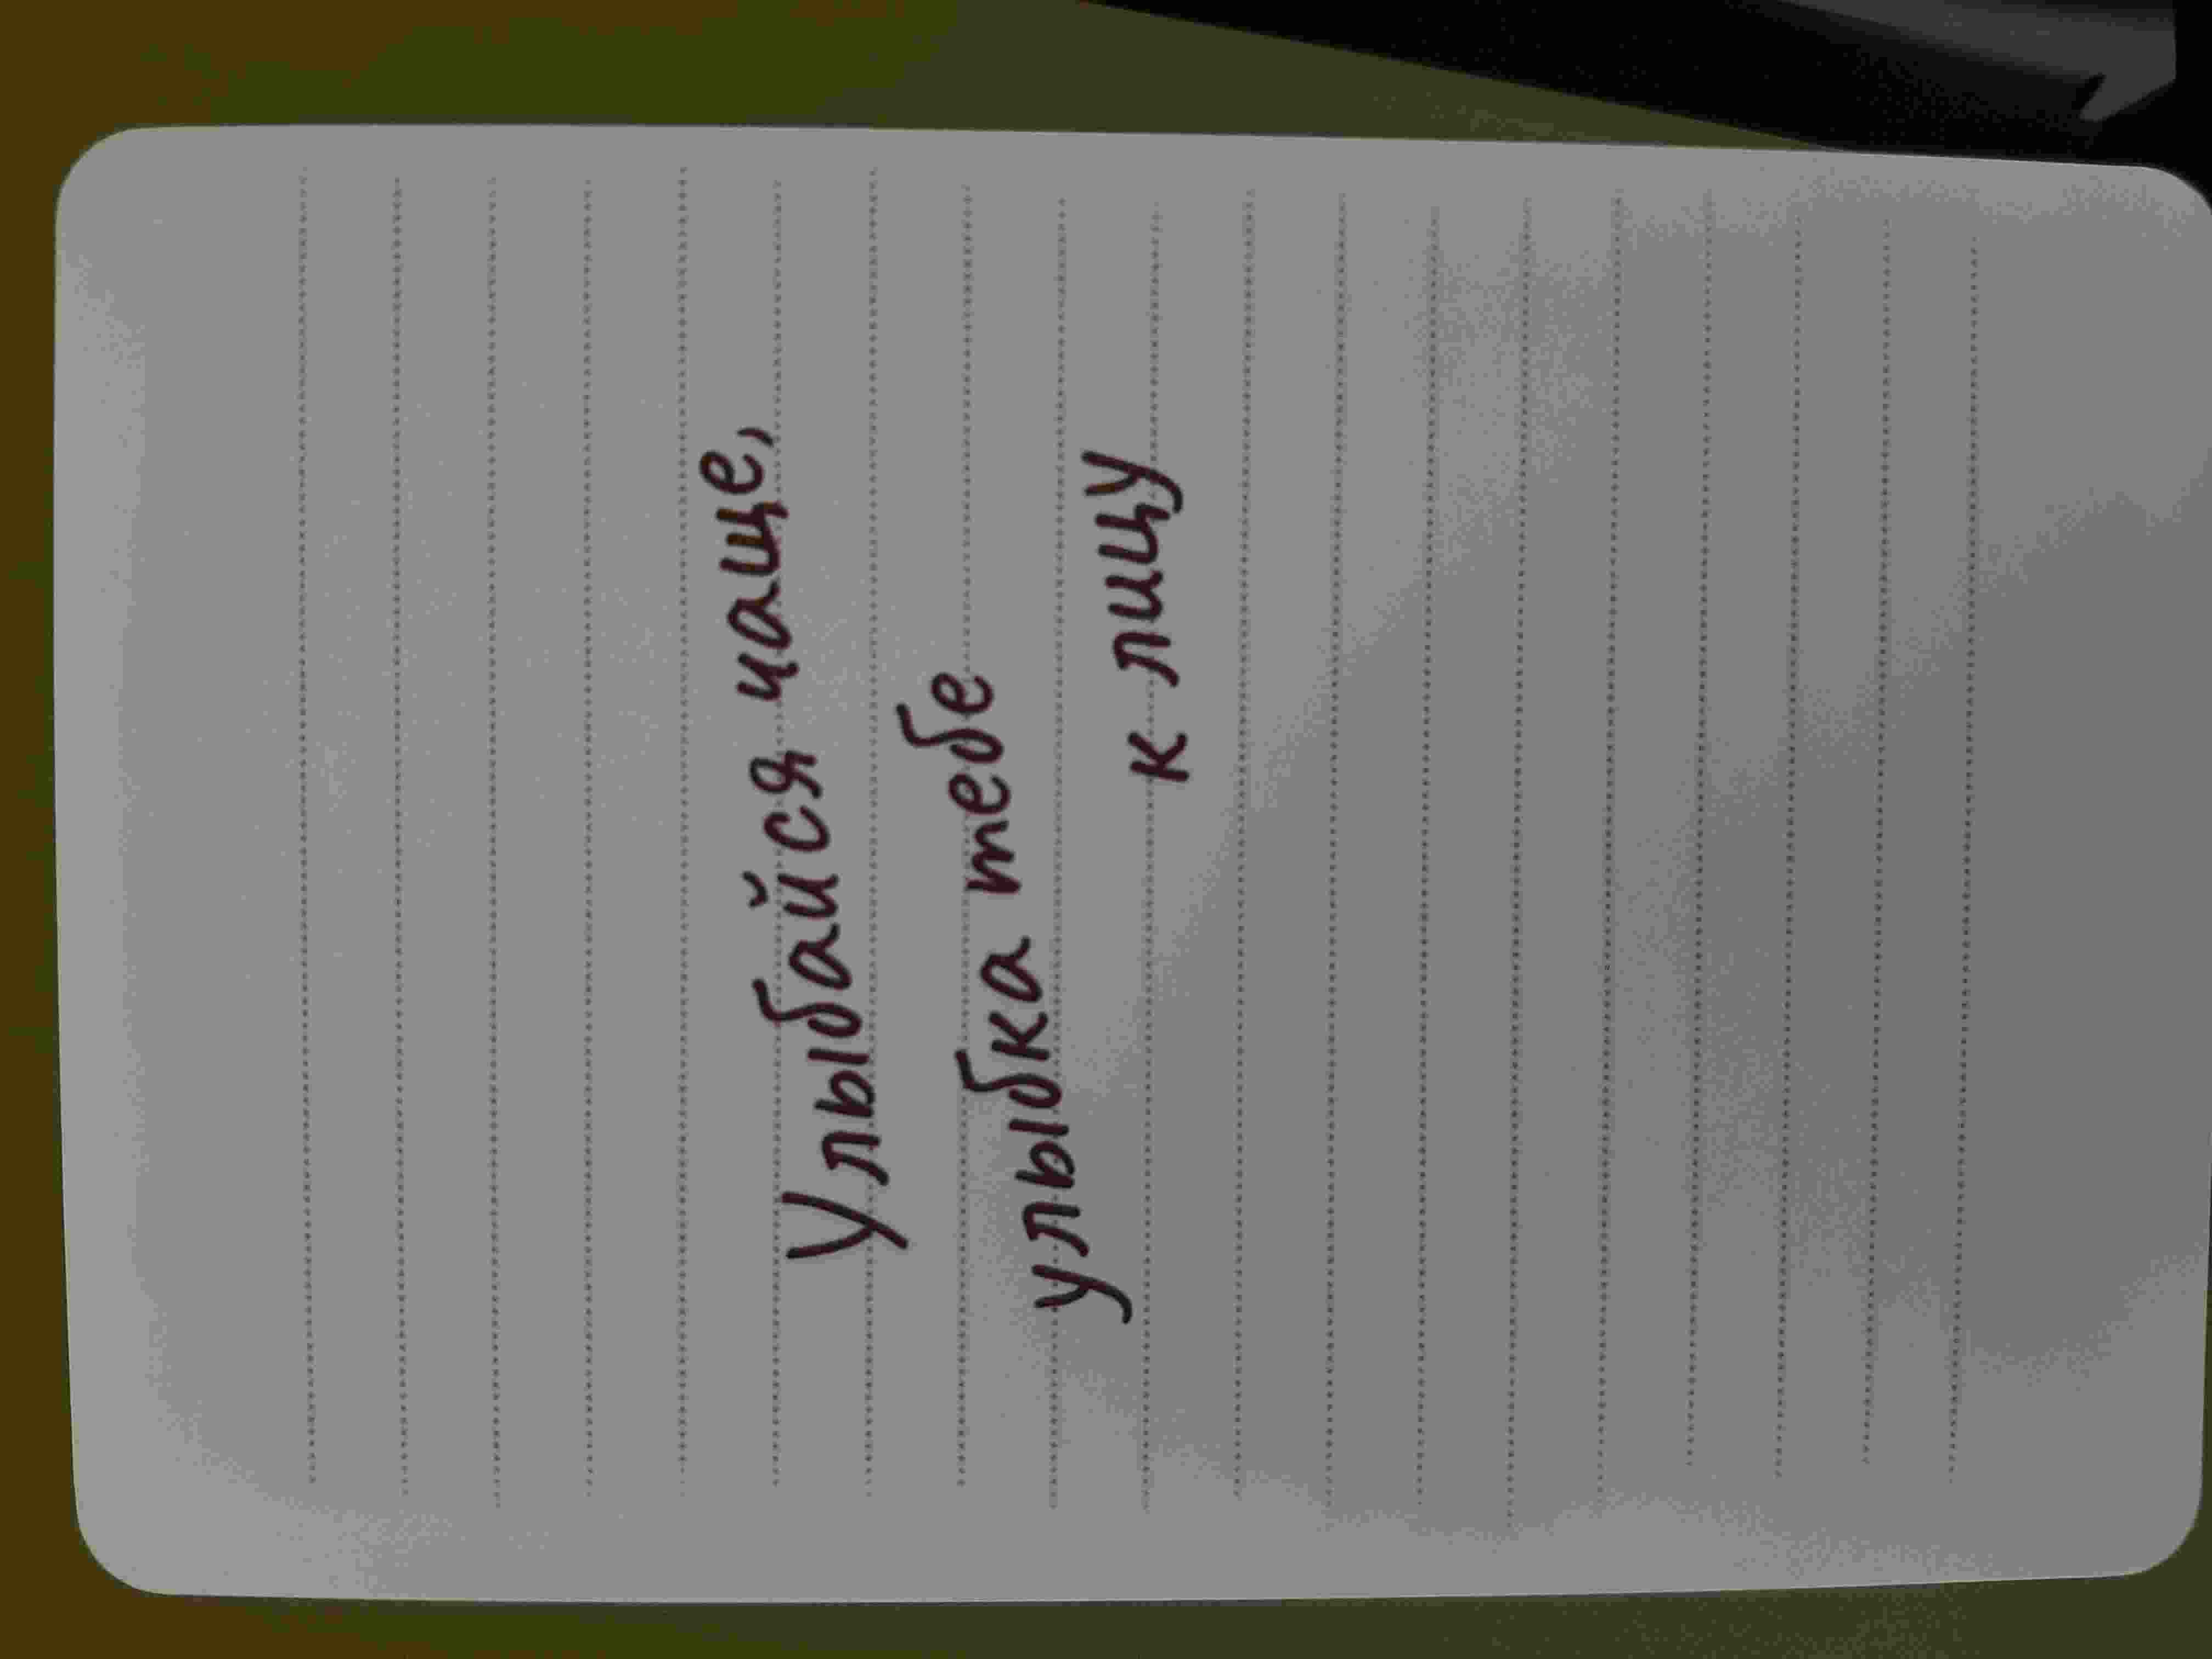 Улыбайся чаще,
улыбка тебе
к лицу